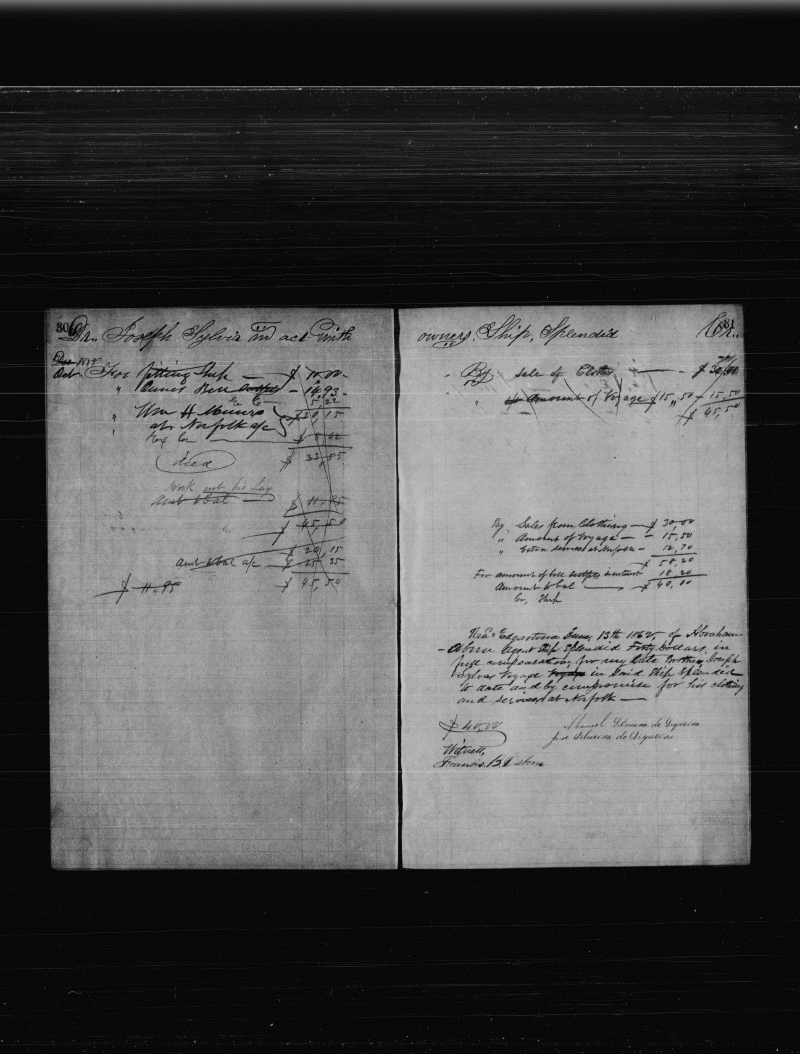 Dr. Joseph Sylvia in act with
For fitting Ship — $ 10,00
" Outfits — 14,93
Ex Co — 5,22
" Wm H Munro $ 30,15
at Norfolk a/c
$ 33,85
died
Work out his Lay
Amt to bal — $ 11,95
$ 45,50
$ 20,15
Amt to bal a/c — $ 25,35
$ 11,95 $ 45,50
owners Ship, Splendid Cr.
By Sale of Clothes — $ 30,00
" Amount of Voyage $15,50 — 15,50
$ 45,50
By Sales from Clothing — $ 30,00
" Amount of Voyage — " 15,50
" Extra services at Norfolk — " 12,70
$ 58,20
For amount of bill outfits in return 18,20
Amount to bal — $ 40,00
Ship
Recd Edgartown June, 13th 1862, of Abraham
Osborn Agent Ship Splendid Forty Dollars, in
full compensation for my late Brother Joseph
Sylvias Voyage in Said Ship Splendid
to date and by compromise for his clothing
and services at Norfolk —
$ 40,00
Manuel Silveira de Siqueira
José Silveira de Siqueira
Witness,
Francis. B. Osborn